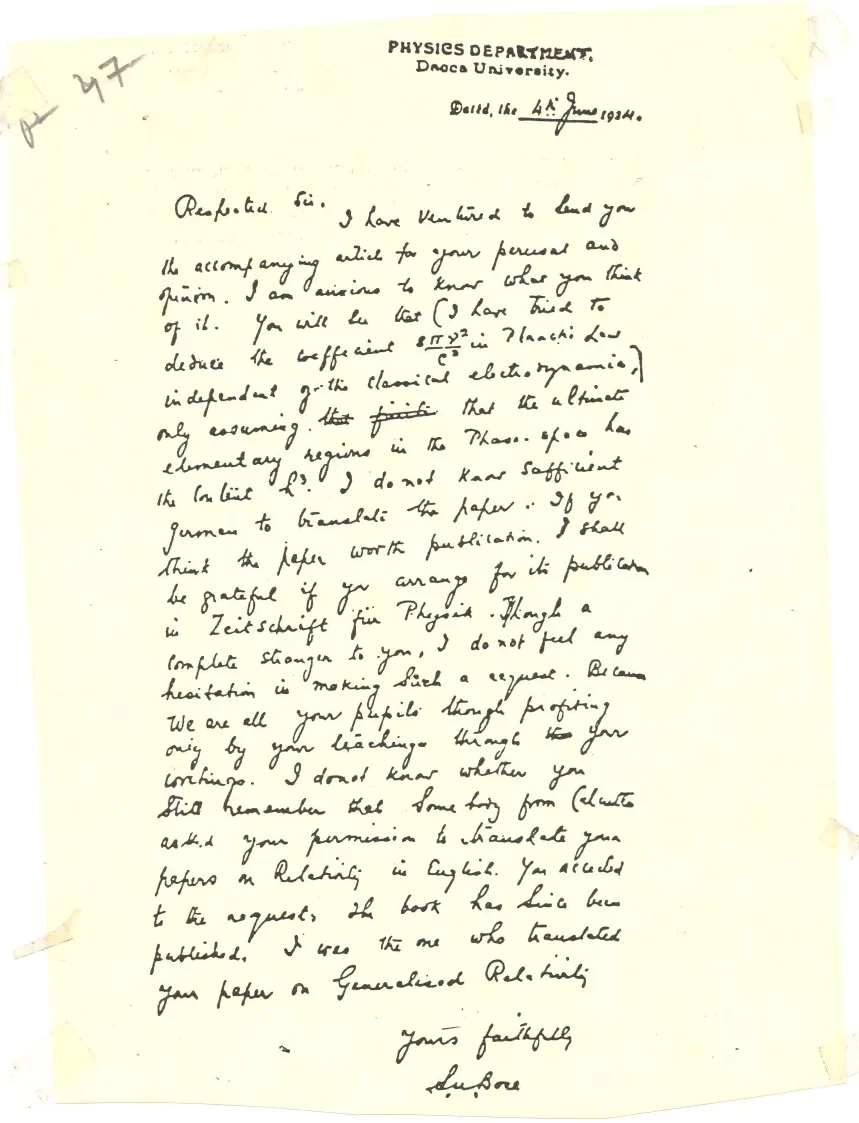 47
PHYSICS DEPARTMENT,
Dacca University.
Dated, the 4th June 1924.
Respected Sir. I have ventured to send you
the accompanying article for your perusal and
opinion. I am anxious to know what you think
of it. You will see that (I have tried to
deduce the coefficient 8πν²/c³ in Planck's Law
independent of the classical electrodynamics,)
only assuming that finite that the ultimate
elementary regions in the Phase-space has
the content h³. I do not know sufficient
german to translate the paper. If you
think the paper worth publication. I shall
be grateful if you arrange for its publication
in Zeitschrift für Physik. Though a
complete stranger to you, I do not feel any
hesitation in making such a request. Because
We are all your pupils though profiting
only by your teachings through the your
writings. I donot know whether you
still remember that Somebody from Calcutta
asked your permission to translate your
papers on Relativity in English. You acceded
to the request. The book has since been
published. I was the one who translated
your paper on Generalised Relativity
Yours faithfully
S.N. Bose